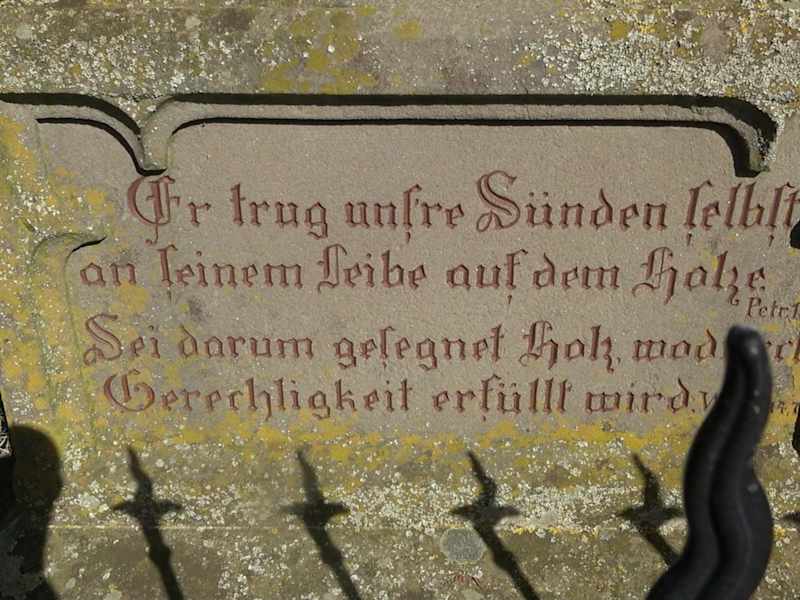 Er trug unsre Sünden selbst
an seinem Leibe auf dem Holze.
Petr. 1.
Sei darum gesegnet Holz, wodurch
Gerechtigkeit erfüllt wird.